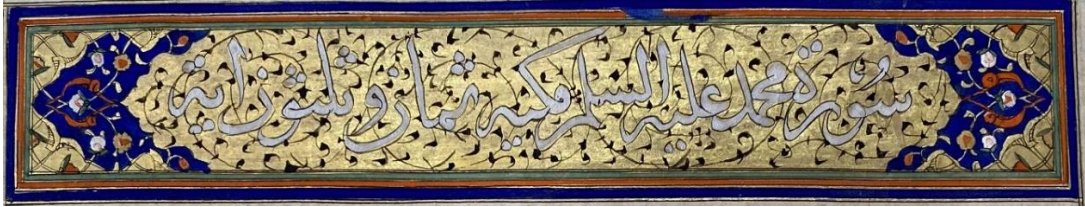 سورة محمد عليه السلم مكية ثمان وثلثون اية